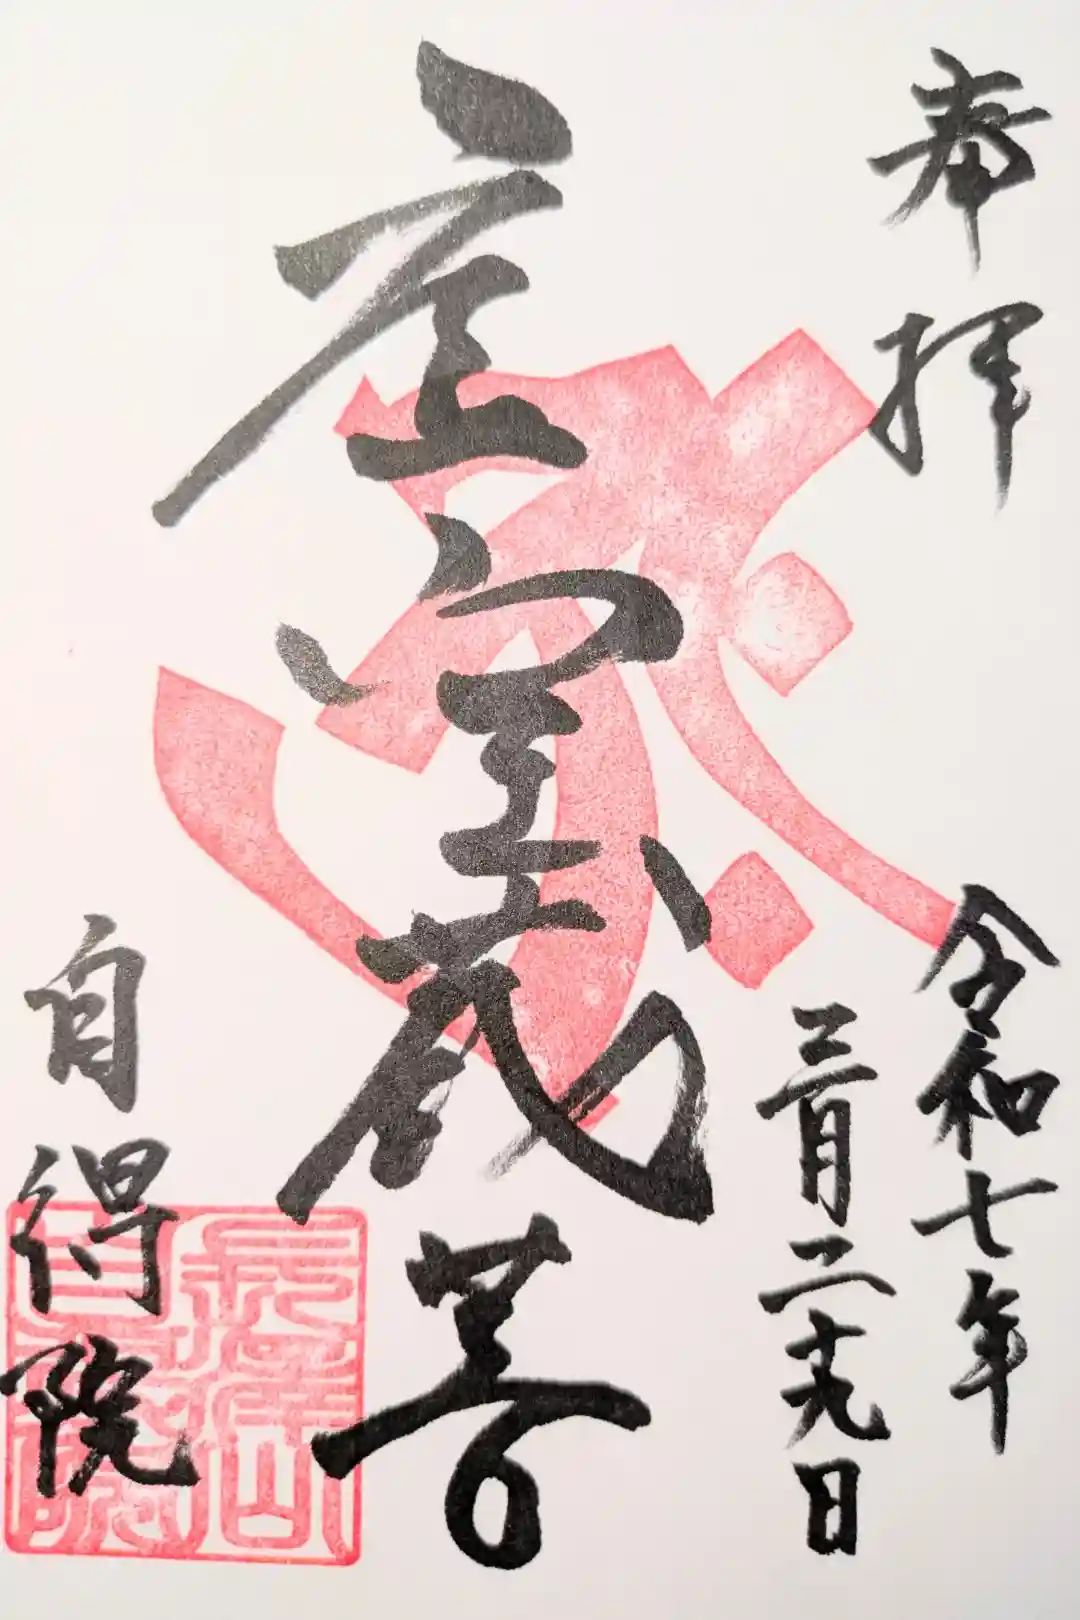 奉拝
令和七年
三月二十九日
虚空蔵
自得院